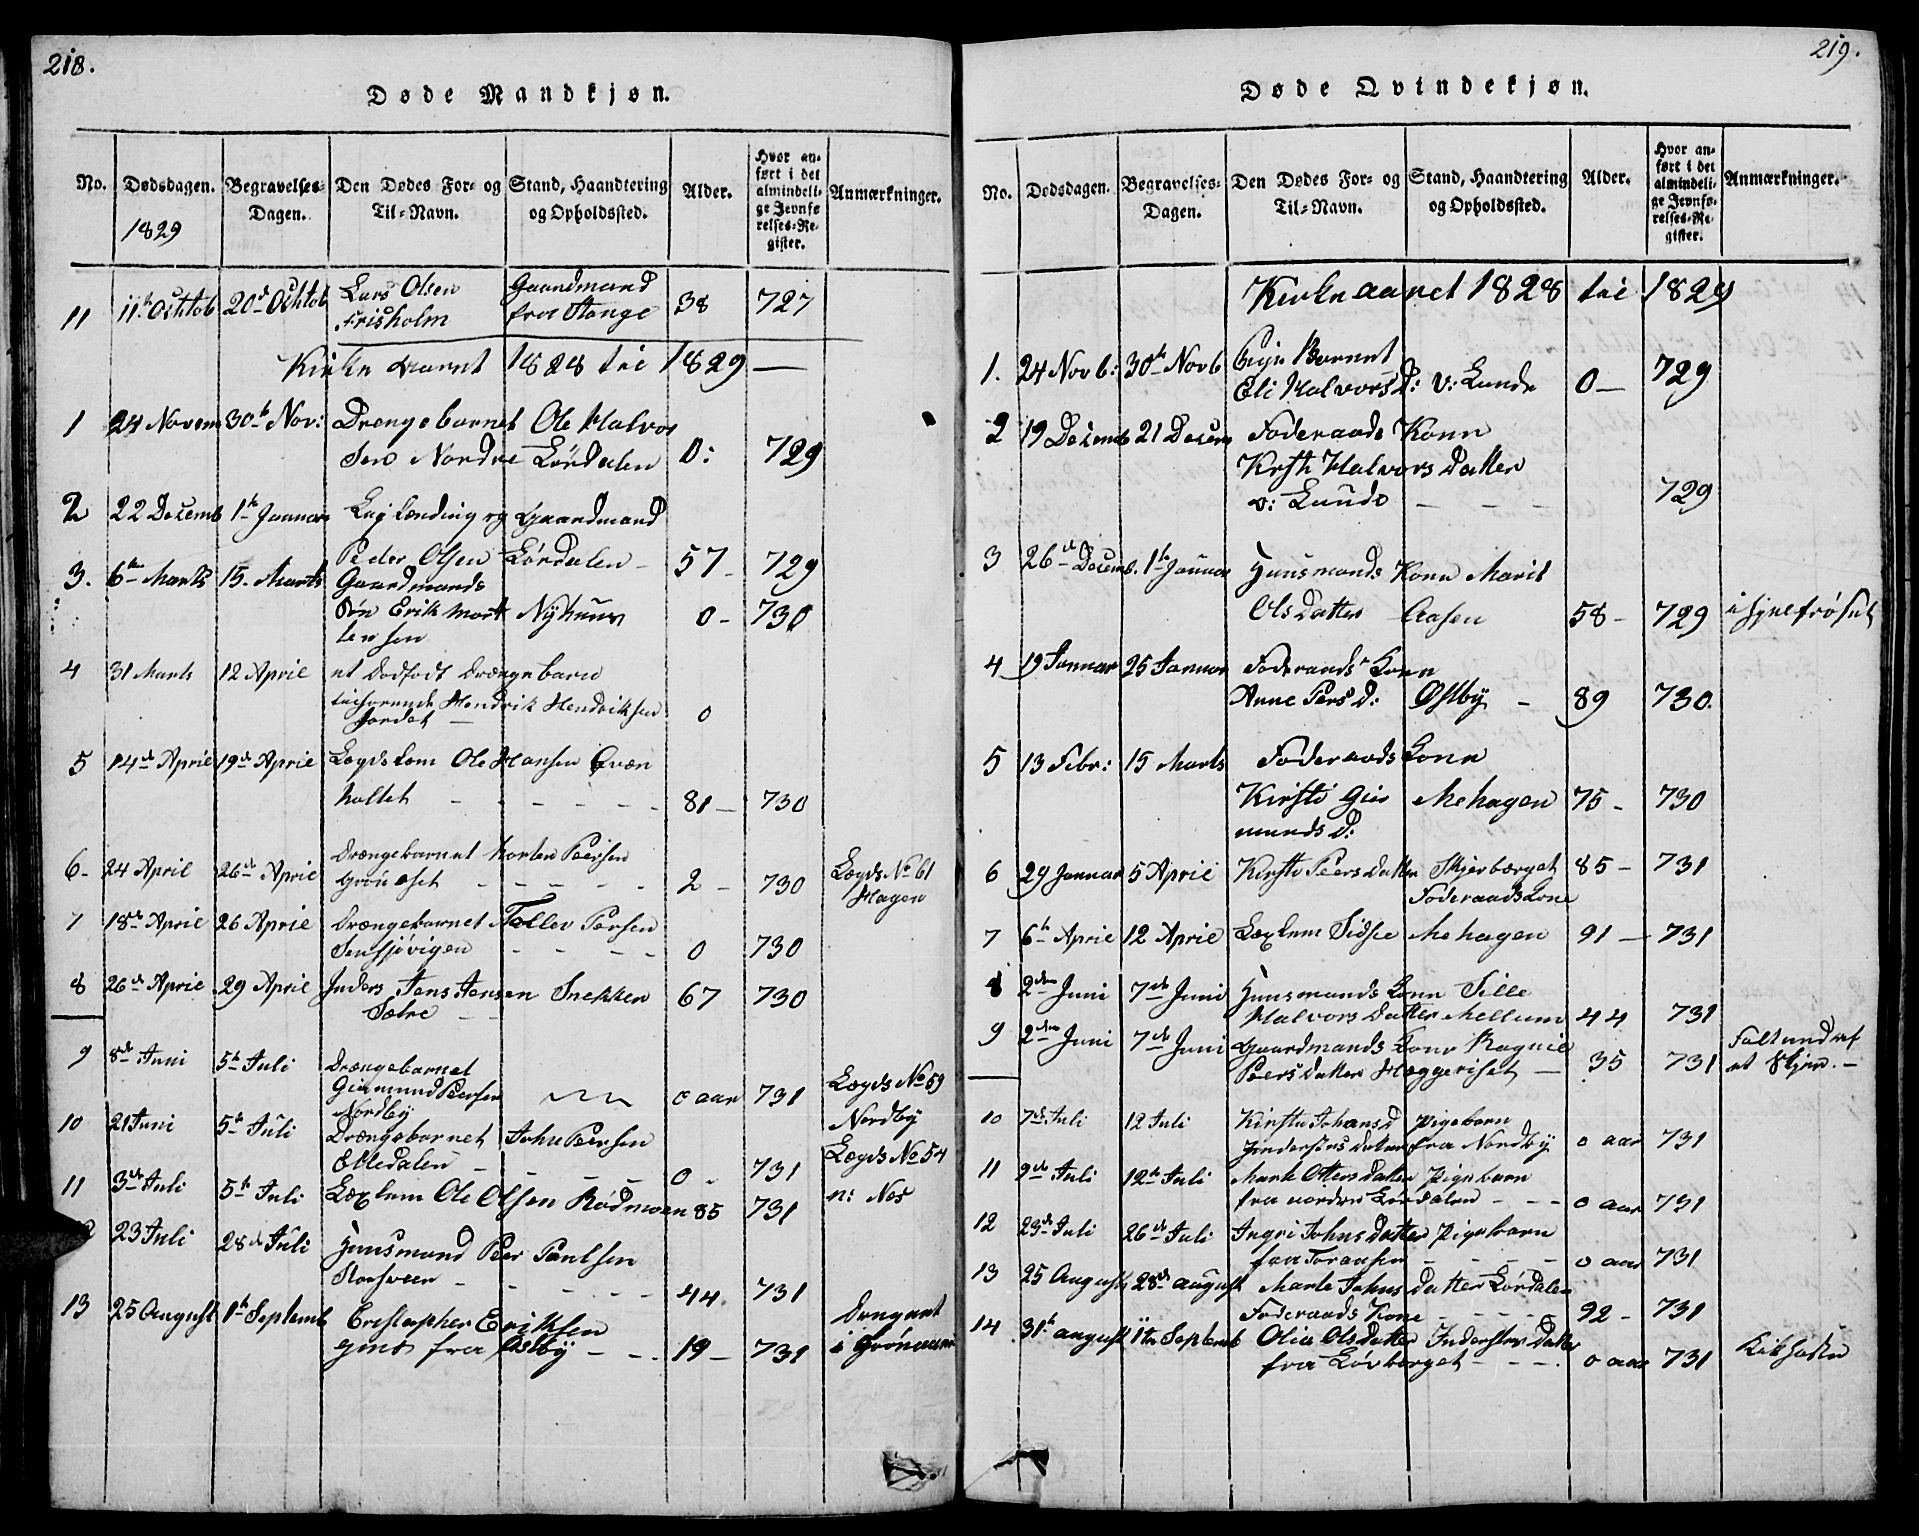 218.
Døde Mandkjøn.
No.
Dødsdagen.
1829
Begravelses-
Dagen.
Den Dødes For- og
Til-Navn.
Stand, Haandtering
og Opholdssted.
Alder.
Hvor an-
ført i det
almindeli-
ge Jevnfø-
relses-Re-
gister.
Anmærkninger.
11 11te Ochtob 20de Ochtob Lars Olsen Gaardmand
Frisholm fra Stange 38 727
Kirke aaret 1828 til 1829
1 24 Novem 30te Nov: Drengebarnet Ole Halvor
Sen Nordre Lördalen 0: 729
2 22 Decemb 1te Januar Gaardmand
Peder Olsen Lördalen 57 729
3. 6te Marts 15. Marts Gaardmands
Sön Erik Mort Nyhuus 0 - 730
tensen
4 31 Marts 12 April et Dödfödt Drænge barn
tilhørende Hendrik Hendriksen
Jordet 0
5 14de April 19de April Lægdslem Ole Hansen Qvæn
holtet - - - - - 81 - 730
6 - 24 April 26de April Drængebarnet Morten Peersen
Grönoset - - - - 2 - 730
Lægds No 61
Hagen
7 18de April 26 April Drængebarnet Tollev Persen
Sensjövigen - - - 0 730
8 26de April 29 April Inders Jens Jensen Snekker 67 730
Sætre
9 8de Juni 5te Juli Drængebarnet
Guimund Peersen 0 aar 731
Nordby
Lægds No 59
Nordby
10 21 Juni 5te Juli Drængebarnet John Peersen
Elledalen - - - - 0 - 731
Lægds No 54
n: Næs
11 3de Juli 5te Juli Læxlem Ole Olsen Rödmoen 85 731
23 Juli 28de Juli Huusmand Peer Paulsen
Storsveen - - - - 44. 731
13 25 August 1te Septemb Cristopher Eriksen
gint fra Østby - - 19 - 731
219.
Døde Qvindekjøn.
No.
Dødsdagen.
Begravelses-
Dagen.
Den Dødes For- og
Til-Navn.
Stand, Haandtering
og Opholdssted.
Alder.
Hvor an-
ført i det
almindeli-
ge Jevnfø-
relses-Re-
gister.
Anmærkninger.
Kirke aaret 1828 til 1829
1. 24 Novb: 30te Novb Pige Barnet
Eli Halvors D: v: Lunde 0 - 729
2 19 Decemb 21 Decem Föderaads Konn
Kirsti Halvors Datter
v: Lunde - - - 729
3 26de Decemb. 1te Januar Huusmands Konn Marit
Ols Datter Aasen 58 - 729
4 19 Januar 25 Januar Föderaads Konn
Anne Pers D: Østby - 89 730.
5 13 Febr: 15 Marts Föderaads Konn
Kirsti Gui Mehagen 75 - 730
munds D:
6 29 Januar 5 April Kirsti Peers Datter Skjerberget 85 - 731
Föderaads Kone
7 6te April 12 April Læxlem Sidsel Mehagen 91 - 731
8 2den Juni 7de Juni Huusmands Konn Sille
Halvors Datter Mellum 44 731
9 2den Juni 7de Juni Gaardmands Kone Ragnil
Peers Datter Heggeriset - 35 731
10 7de Juli 12 Juli Kirsti Johans D Pigebarn
Indersters Datter fra Nordby 0 aar 731
11 9de Juli 12te Juli Marte Ottersdatter Pige barn
fra nordre Lördalen - - - 0 aar 731
12 23de Juli 26de Juli Ingri Johns Datter Pige barn
fra Toraasen - - - 0 aar 731
13 25 August 28de August Marte Johns Datter Lördalen
Föderaads Kone - - - 92 - 731
14 31te August 1te Septemb Olia Ols Datter Inderster Datter
fra Lövberget - - - 0 aar 731